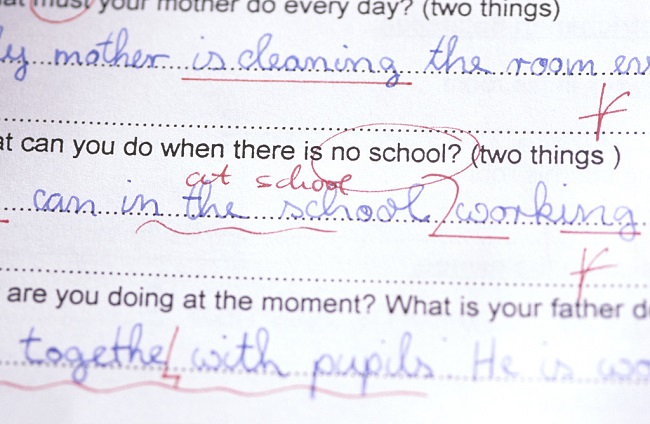 must your mother do every day? (two things)
mother is cleaning the room
can you do when there is no school? (two things )
at school
can in the school working
are you doing at the moment? What is your father
togethe with pupils. He is